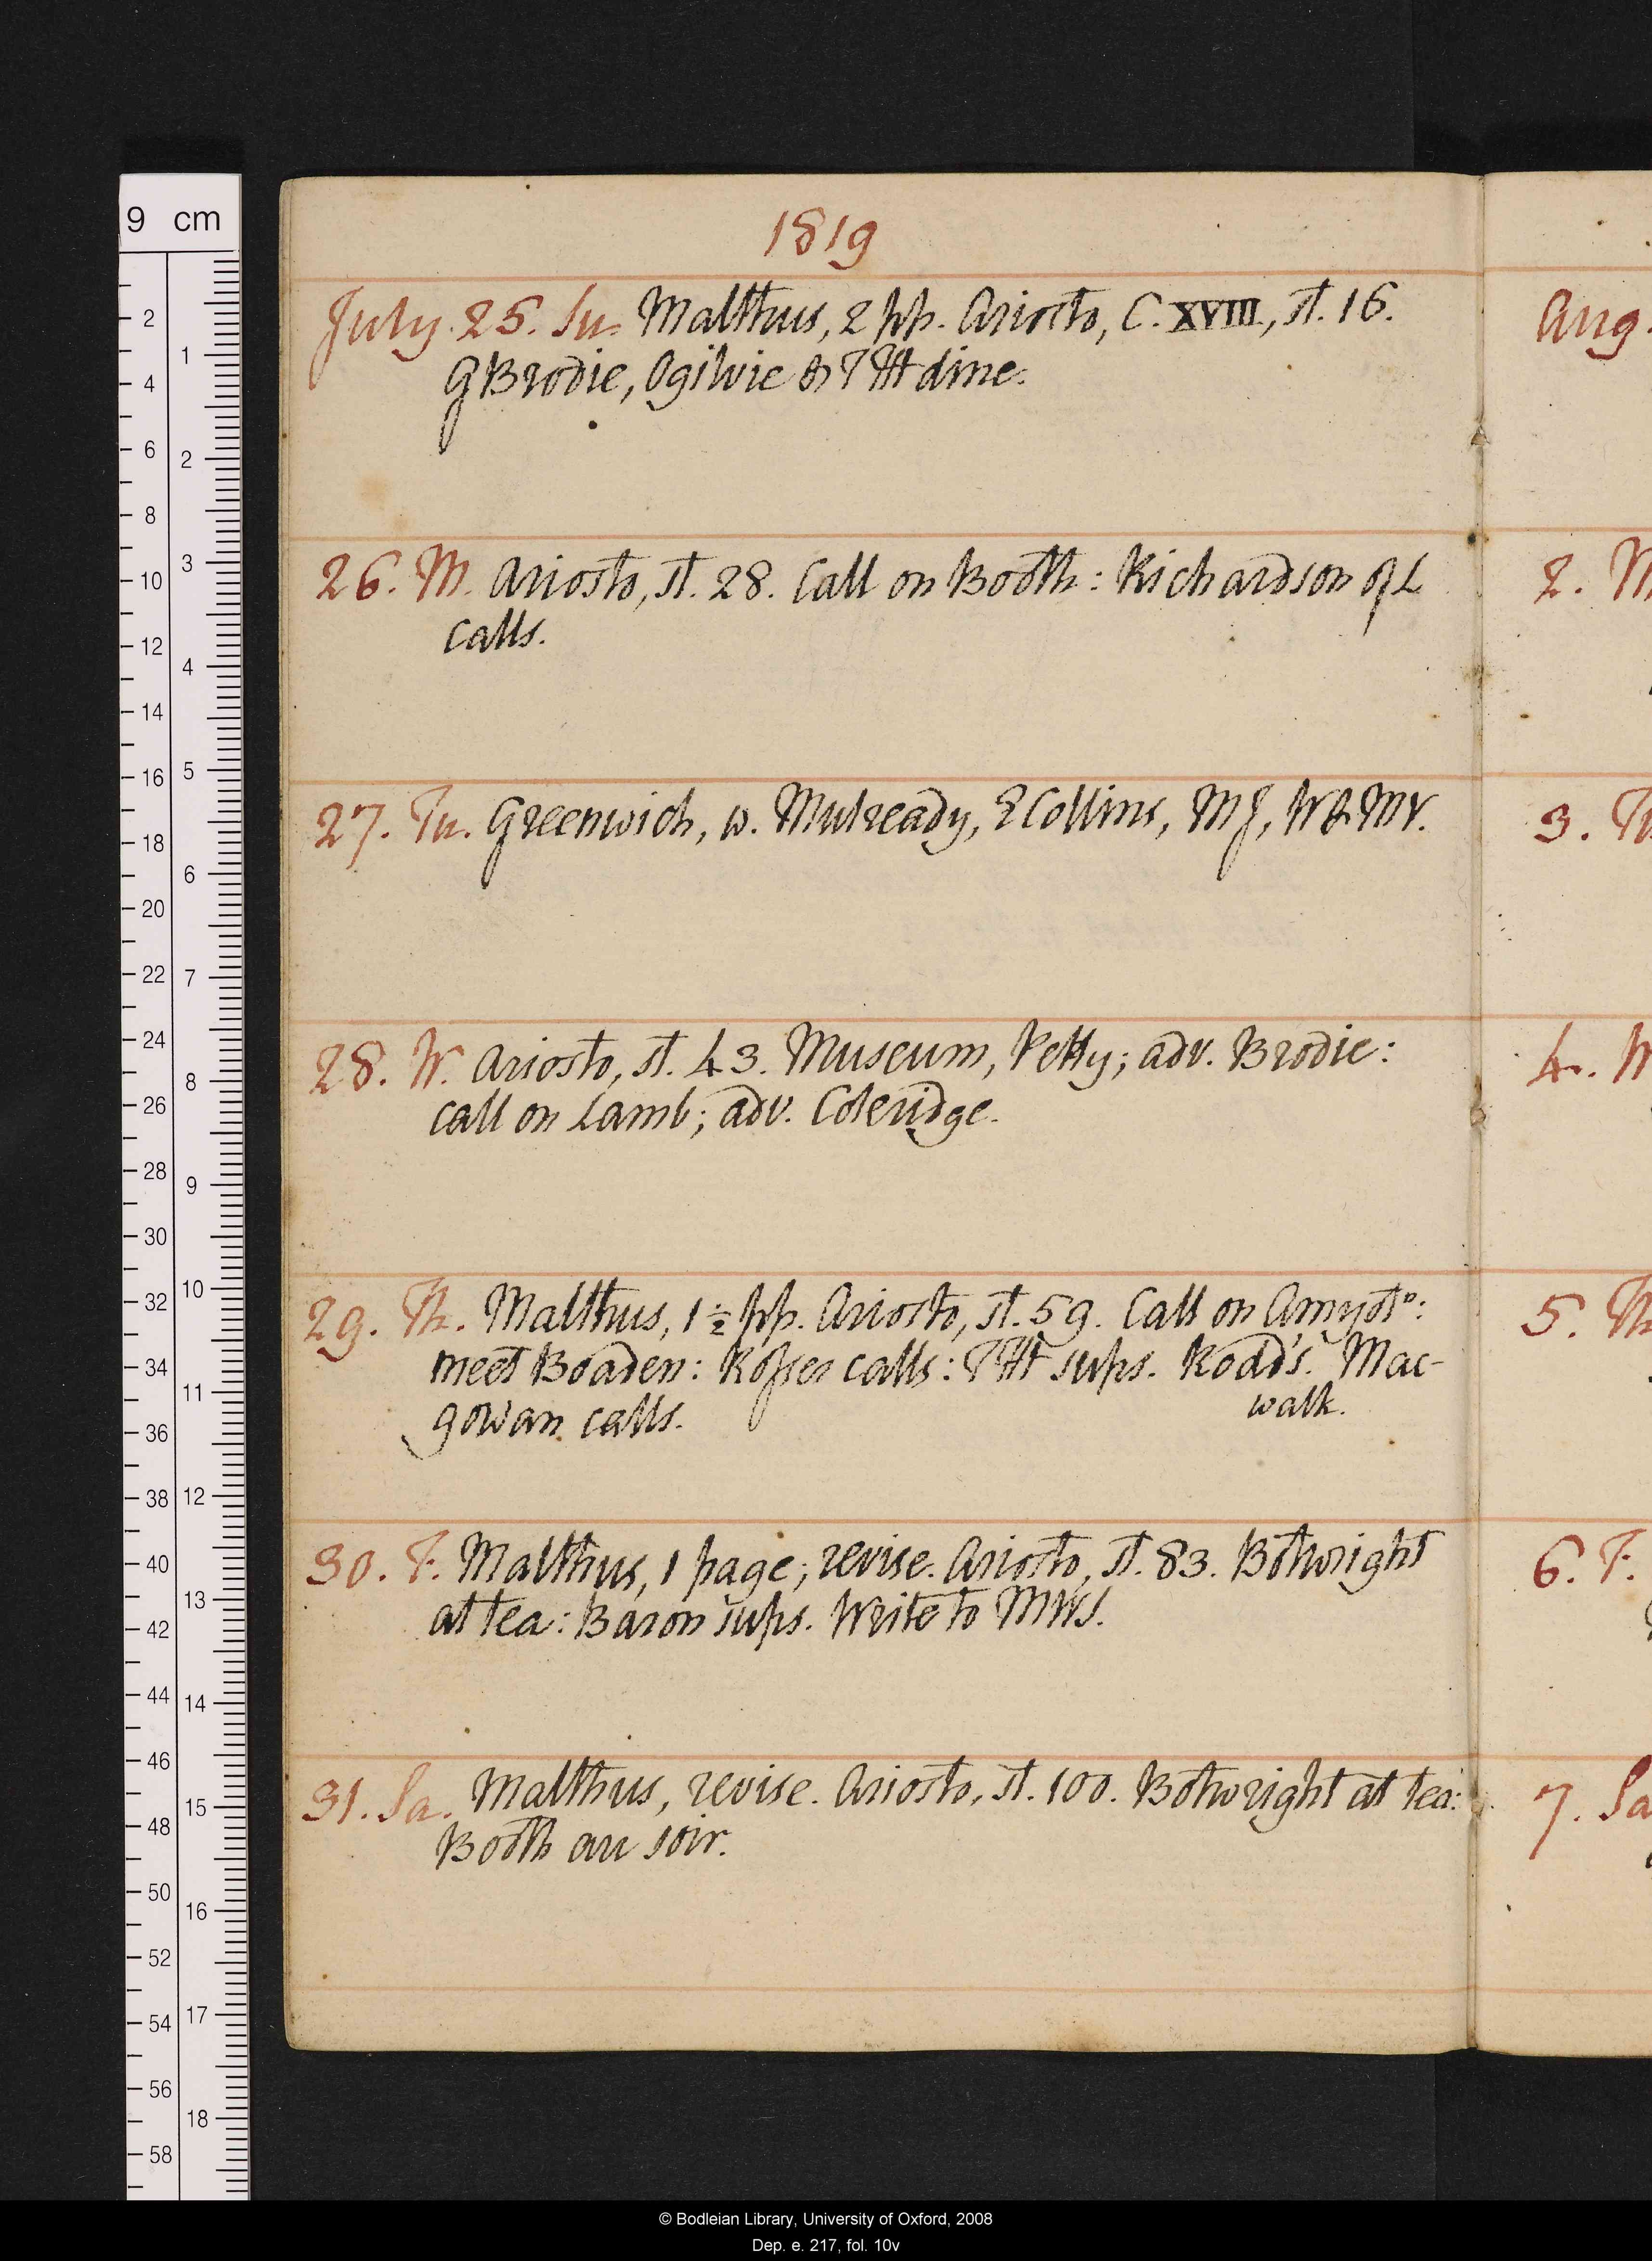 1819
July. 25. Su. Malthus, 2 pp. Ariosto, C. XVIII, st. 16.
G Brodie, Ogilvie & THH dine.
26. M. Ariosto, st. 28. Call on Booth: Richardson of L
calls.
27. Tu. Greenwich, w. Mulready, E Collins, MJ, W & MV.
28. W. Ariosto, st. 43. Museum, Petty; adv. Brodie:
call on Lamb; adv. Coleridge.
29. Th. Malthus, 1½ pp. Ariosto, st. 59. Call on Amyot°:
meet Boaden: Rosser calls: THH sups. Rodd's. Mac-
gowan calls. walk.
30. F. Malthus, 1 page; revise. Ariosto, st. 83. Botwright
at tea: Baron sups. Write to MWS.
31. Sa. Malthus, revise. Ariosto, st. 100. Botwright at tea:
Booth au soir.
Aug.
2. M
3. Tu
4. W
5. Th
6. F.
7. Sa
9 cm
2
4
6
8
10
12
14
16
18
20
22
24
26
28
30
32
34
36
38
40
42
44
46
48
50
52
54
56
58
1
2
3
4
5
6
7
8
9
10
11
12
13
14
15
16
17
18
© Bodleian Library, University of Oxford, 2008
Dep. e. 217, fol. 10v